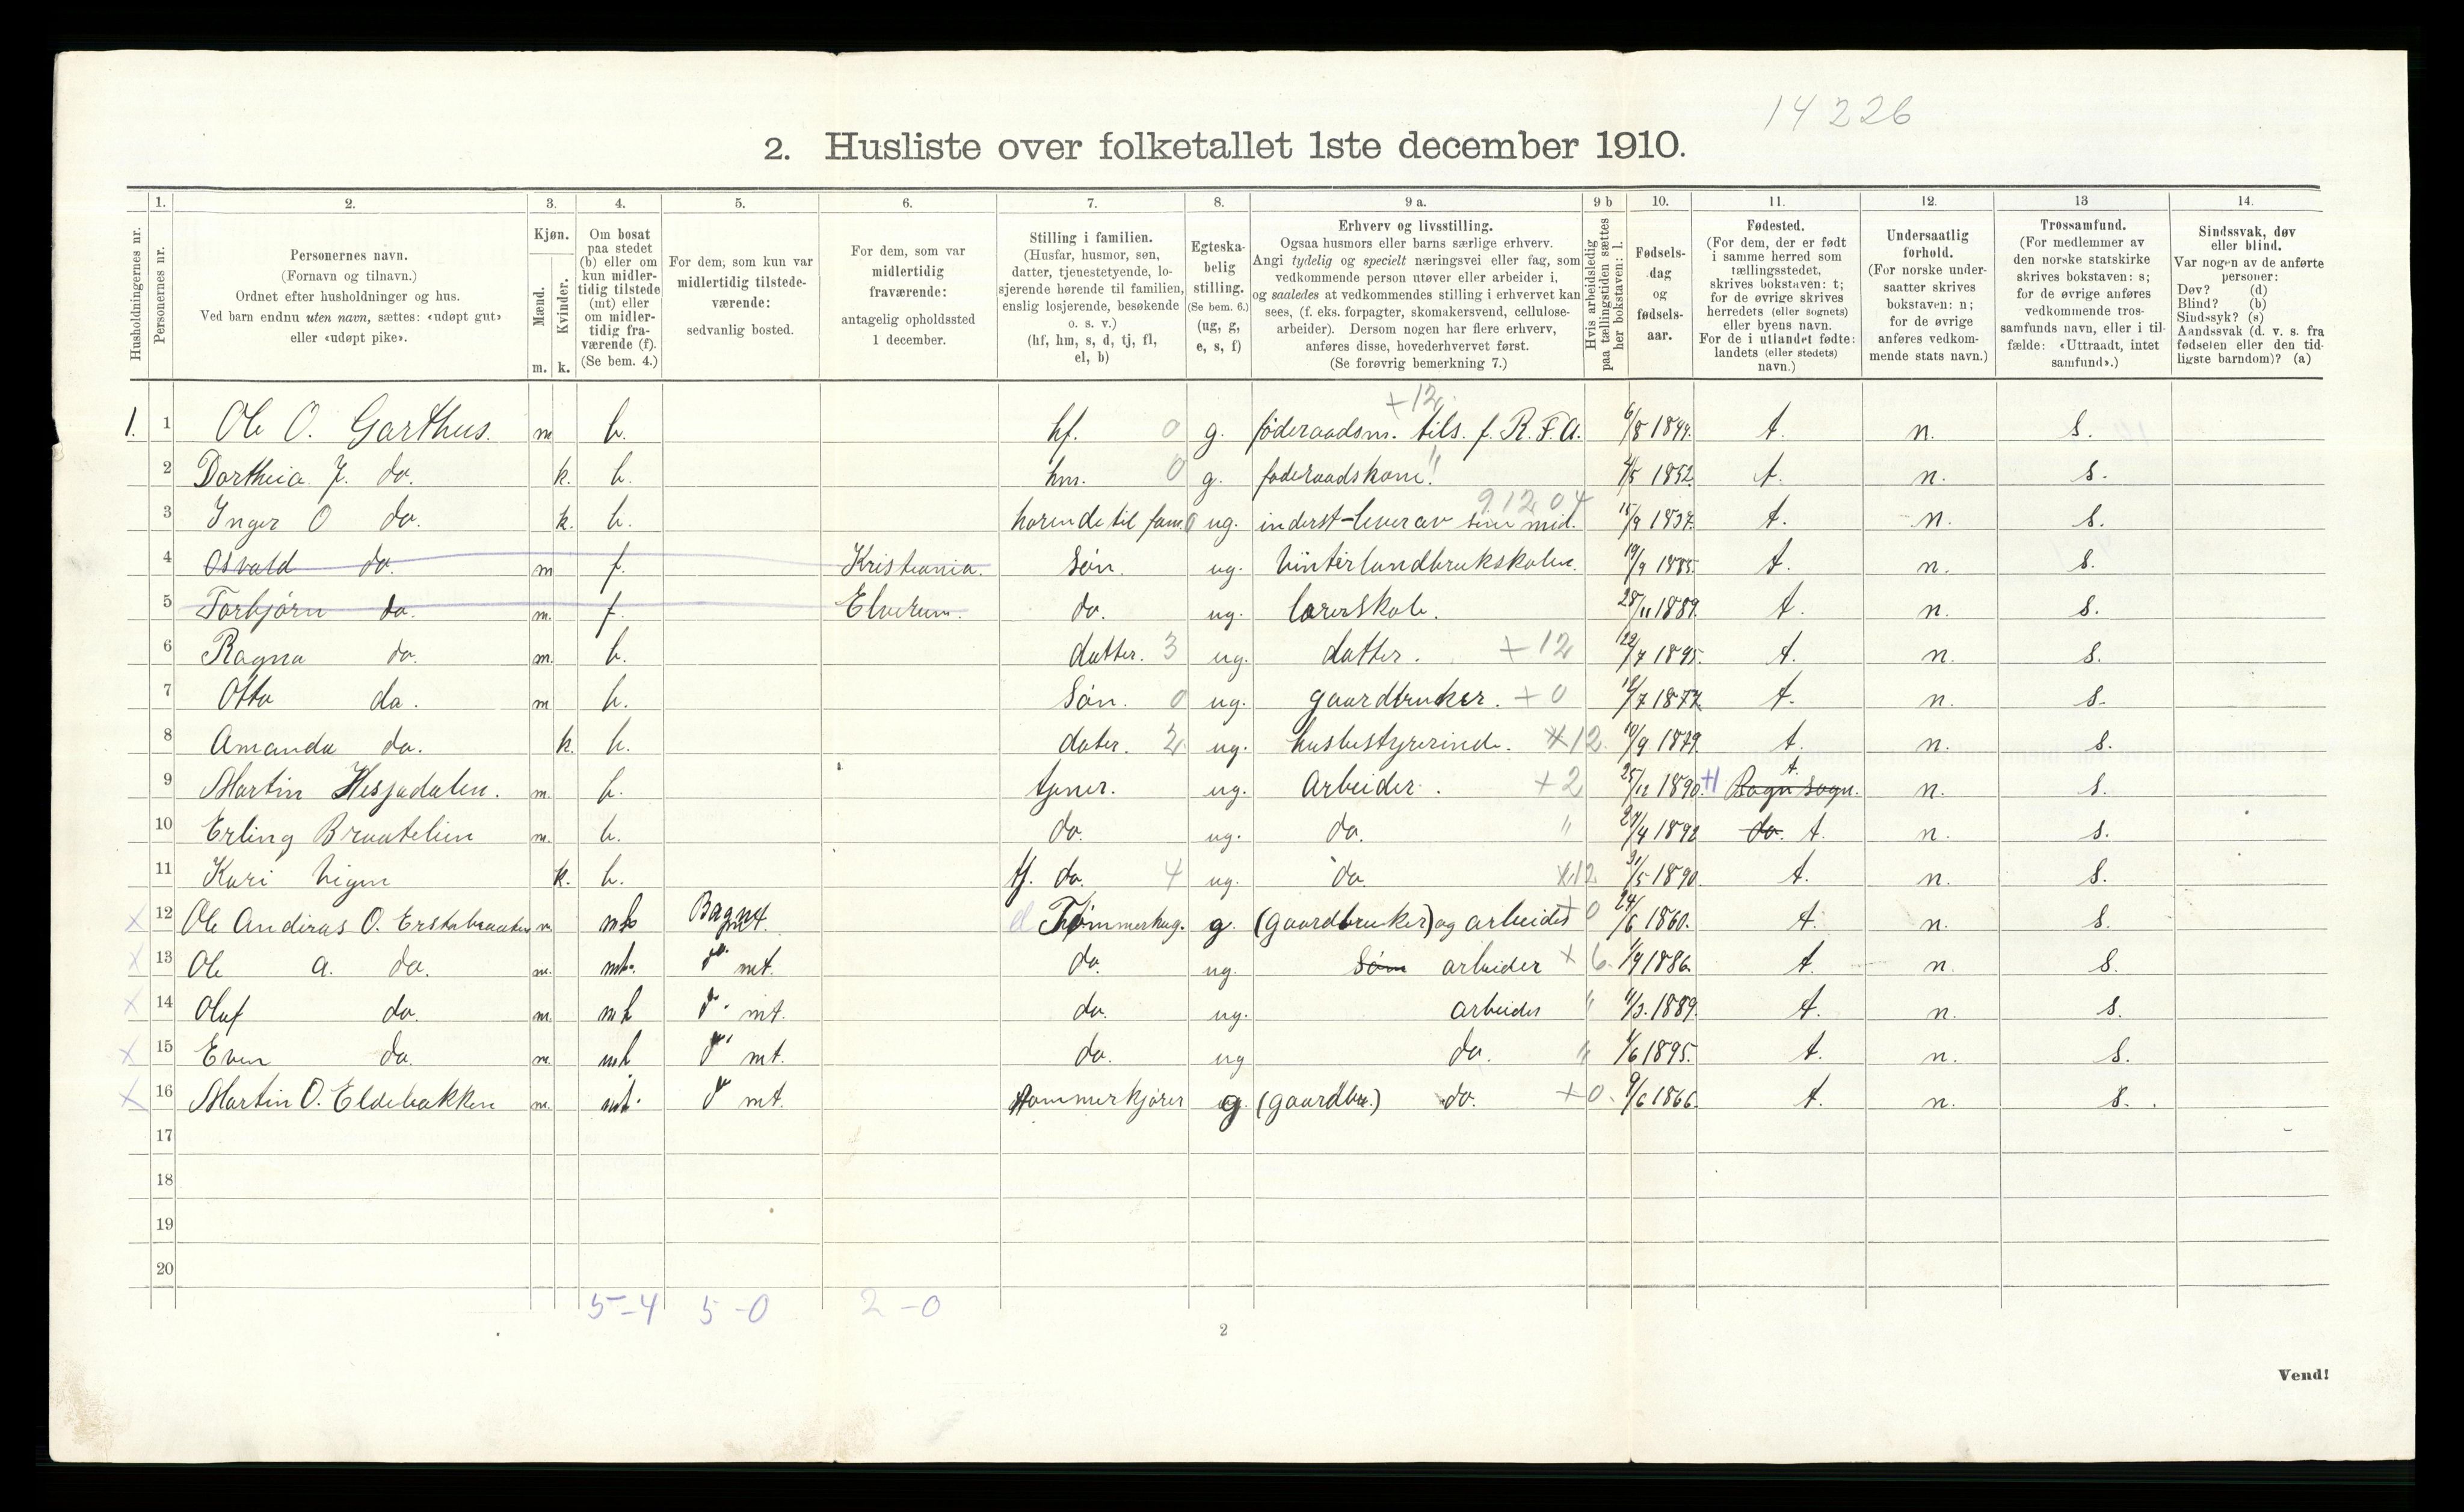 14226
2. Husliste over folketallet 1ste december 1910.
1. 2. 3. 4. 5. 6. 7. 8. 9 a. 9 b 10. 11. 12. 13 14.
Husholdningernes nr.
Personernes nr.
Personernes navn.
(Fornavn og tilnavn.)
Ordnet efter husholdninger og hus.
Ved barn endnu uten navn, sættes: «udøpt gut»
eller «udøpt pike».
Kjøn.
Mænd.
Kvinder.
m. k.
Om bosat
paa stedet
(b) eller om
kun midler-
tidig tilstede
(mt) eller
om midler-
tidig fra-
værende (f).
(Se bem. 4.)
For dem, som kun var
midlertidig tilstede-
værende:
sedvanlig bosted.
For dem, som var
midlertidig
fraværende:
antagelig opholdssted
1 december.
Stilling i familien.
(Husfar, husmor, søn,
datter, tjenestetyende, lo-
sjerende hørende til familien,
enslig losjerende, besøkende
o. s. v.)
(hf, hm, s, d, tj, fl,
el, b)
Egteska-
belig
stilling.
(Se bem. 6.)
(ug, g,
e, s, f)
Erhverv og livsstilling.
Ogsaa husmors eller barns særlige erhverv.
Angi tydelig og specielt næringsvei eller fag, som
vedkommende person utøver eller arbeider i,
og saaledes at vedkommendes stilling i erhvervet kan
sees, (f. eks. forpagter, skomakersvend, cellulose-
arbeider). Dersom nogen har flere erhverv,
anføres disse, hovederhvervet først.
(Se forøvrig bemerkning 7.)
Hvis arbeidsledig
paa tællingstiden sættes
her bokstaven: l.
Fødsels-
dag
og
fødsels-
aar.
Fødested.
(For dem, der er født
i samme herred som
tællingsstedet,
skrives bokstaven: t;
for de øvrige skrives
herredets (eller sognets)
eller byens navn.
For de i utlandet fødte:
landets (eller stedets)
navn.)
Undersaatlig
forhold.
(For norske under-
saatter skrives
bokstaven: n;
for de øvrige
anføres vedkom-
mende stats navn.)
Trossamfund.
(For medlemmer av
den norske statskirke
skrives bokstaven: s;
for de øvrige anføres
vedkommende tros-
samfunds navn, eller i til-
fælde: «Uttraadt, intet
samfund».)
Sindssvak, døv
eller blind.
Var nogen av de anførte
personer:
Døv? (d)
Blind? (b)
Sindssyk? (s)
Aandssvak (d. v. s. fra
fødselen eller den tid-
ligste barndom)? (a)
+12
1. 1 Ole O. Garthus. m b. hf. 0 g. føderaadsm. tils. f. R.F.A. 6/8 1849. t. n. s.
2 Dorthea J. do. k. b. hm. 0 g. føderaadskone " 4/5 1852. t. n. s.
91204
3 Inger O do. k. b. hørende til fam. 0 ug. inderst-lever av sine mid. 15/9 1837. t. n. s.
4 Osvald do. m f. Kristiania. Søn. ug. Vinterlandbrukskolen. 19/9 1885. t. n. s.
5 Torbjørn do. m. f. Elverum. do. ug. lærerskole. 28/11 1889. t. n. s.
6 Ragna do. m. b. datter. 3 ug. datter. +12 22/7 1895. t. n. s.
7 Otto do. m b. Søn. 0 ug. gaardbruker. +0 18/7 1877. t. n. s.
8 Amanda do. k. b. dater. 2 ug. husbestyrerinde. +12. 10/9 1879. t. n. s.
9 Martin Hesjadalen. m. b. tjener. ug. Arbeider. +2 25/12 1890. +1 Bagn sogn. t. n. s.
10 Erling Braatelien m. b. do. ug. do. " 24/4 1892 do. t. n. s.
11 Kari k. b. tj. do. 4 ug. do. +12 31/5 1890. t. n. s.
x 12 Ole Andreas O. m. mt Bagn mt. el Tømmerhug. g. (gaardbruker) og arbeider +0 24/6 1860. t. n. s.
x 13 Ole A. do. m. mt. do. mt. do. ug. Søn arbeider + 6. 1/9 1886. t. n. s.
x 14 Oluf do. m. mt do. mt. do. ug. arbeider " 11/3. 1889. t. n. s.
x 15 Even do. m. mt do. mt. do. ug do. " 1/6 1895. t. n. s.
x 16 Martin O. Eldebakken m. mt. do. mt. tømmerkjører g. (gaardbr.) do. +0. 9/6 1866. t. n. s.
17
18
19
20
5-4 5-0 2-0
2
Vend!